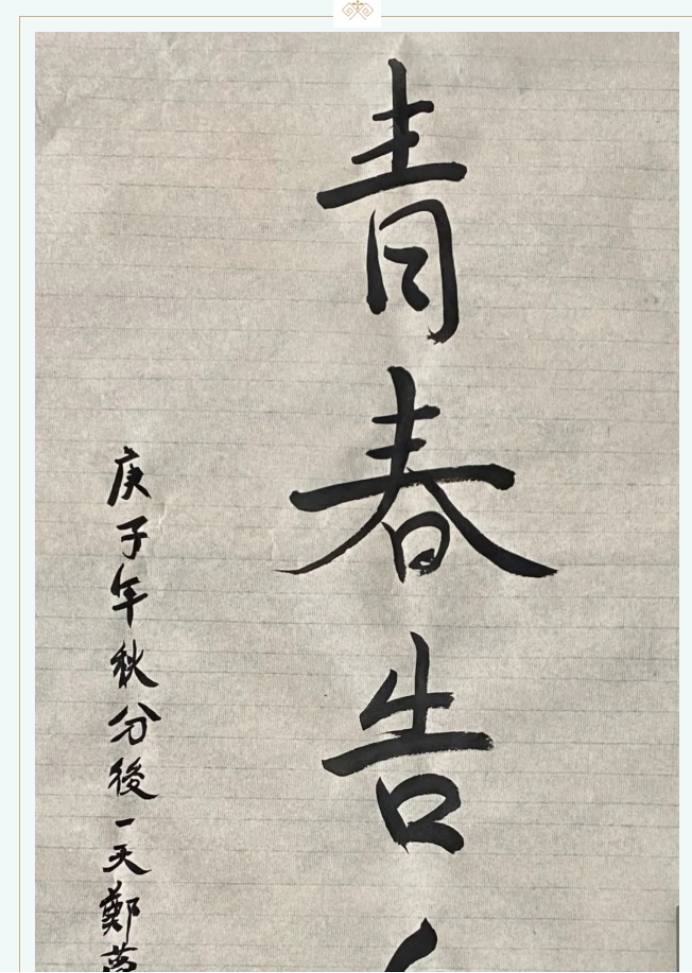 青春告
庚子年秋分後一天鄭